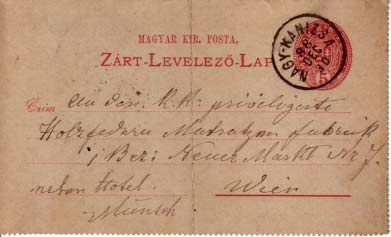 MAGYAR KIR. POSTA.
ZÁRT-LEVELEZŐ-LAP
NAGY-KANIZSA
DEC
5
Czim
An
K.K. privilegirte
Holzfedern Matratzen Fabrik
I Bez: Neuer Markt Nr 7.
neben Hotel
Munsch
Wien